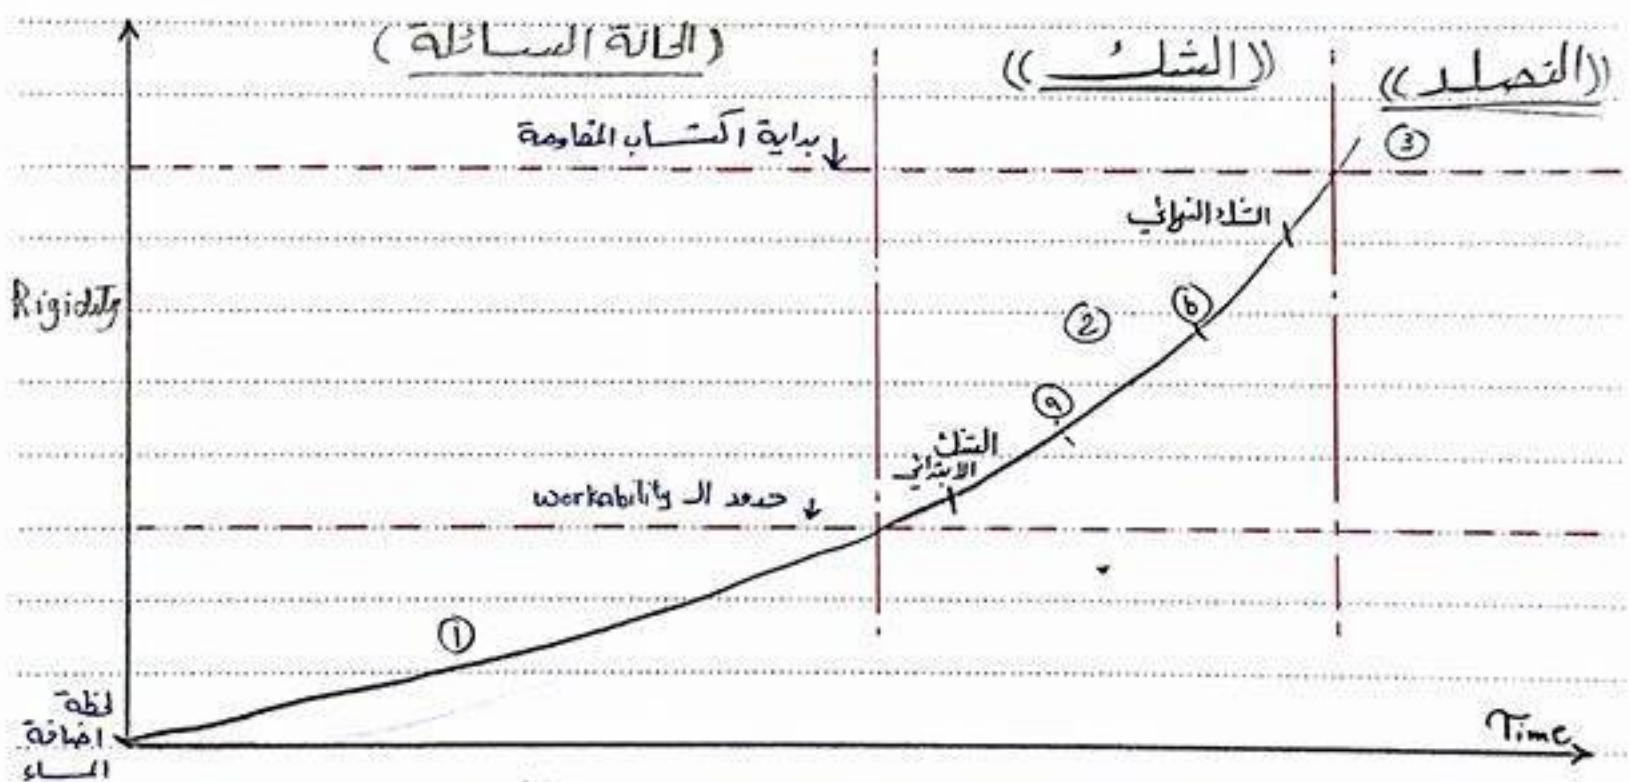 (الحالة السائلة)
((الشك))
((التصلد))
بداية اكتساب المقاومة
3
الشك النهائي
Rigidity
2
b
a
الشك
الابتدائي
حدود الـ workability
1
لحظة
اضافة
الماء
Time